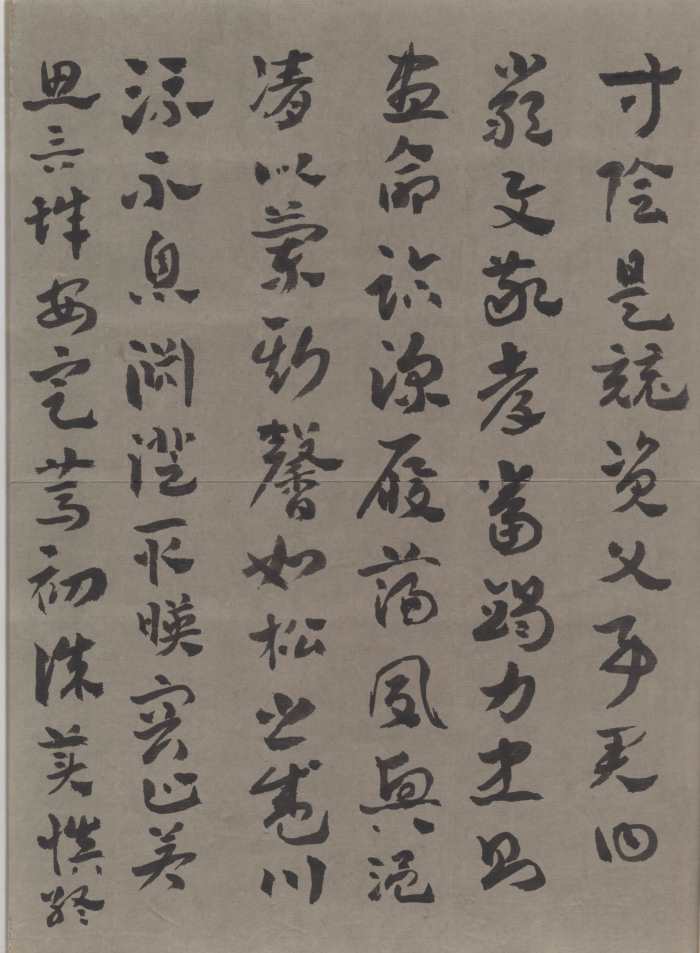 寸陰是競資父事君曰
嚴与敬孝當竭力忠則
盡命臨深履薄夙興温
凊似蘭斯馨如松之盛川
流不息淵澄取暎容止若
思言辭安定篤初誠美慎終